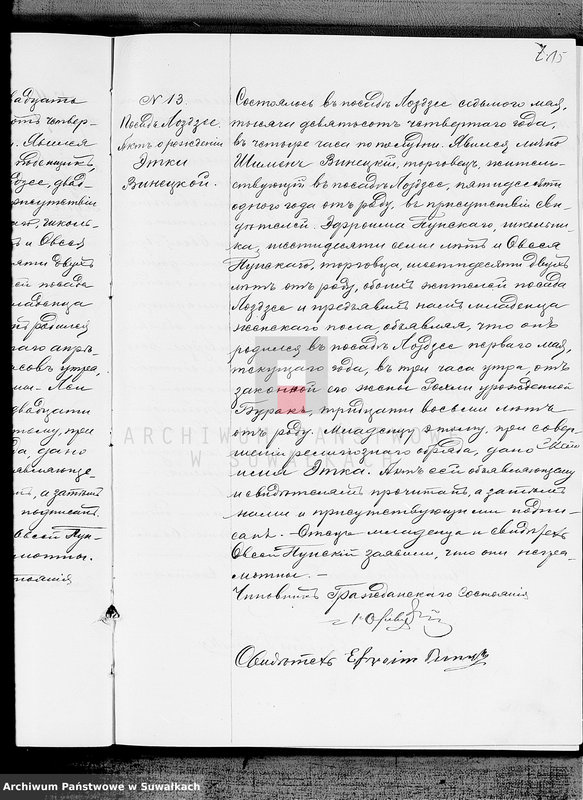 215
N 13.
Посадъ Лоздзее.
Актъ о рожденіи
Этки
Винецкой.
Состоялось въ посадѣ Лоздзее седьмого мая,
тысяча девятьсотъ четвертаго года,
въ четыре часа по полудни. Явился лично
Шлiома Винецкій, торговецъ, житель-
ствующій въ посадѣ Лоздзее, пятидесяти
одного года отъ роду, въ присутствіи сви-
дѣтелей Эфроима Пунскаго, школьни-
ка, шестидесяти семи лѣтъ и Овсея
Пунскаго, торговца, шестидесяти двухъ
лѣтъ отъ роду, обоихъ жителей посада
Лоздзее и предъявилъ намъ младенца
женскаго пола, объявляя, что онъ
родился въ посадѣ Лоздзее перваго мая,
текущаго года, въ три часа утра, отъ
законной его жены урожденной
Буракъ, тридцати восьми лѣтъ
отъ роду. Младенцу этому, при совер-
шеніи религіознаго обряда, дано
имя Этка. Актъ сей объявляющему
и свидѣтелямъ прочитанъ, а затѣмъ
нами и присутствующими подпи-
санъ. – Отецъ младенца и свидѣтель
Овсей Пунскій заявили, что они негра-
мотны. –
Чиновникъ Гражданскаго Состоянія
Свидѣтель Efroim
адцать
отъ четвер-
. Явился
дзее, двад-
присутствіи
школь-
и Овсея
яти двухъ
ей посада
младенца
родился
аго апрѣ-
асовъ утра,
двадцати
тому, при
да, дано
являюще-
ъ, а затѣмъ
подписанъ.
Овсей Пун-
мотны.
стоянія
ARCHIWUM PAŃSTWOWE
W SUWAŁKACH
Archiwum Państwowe w Suwałkach